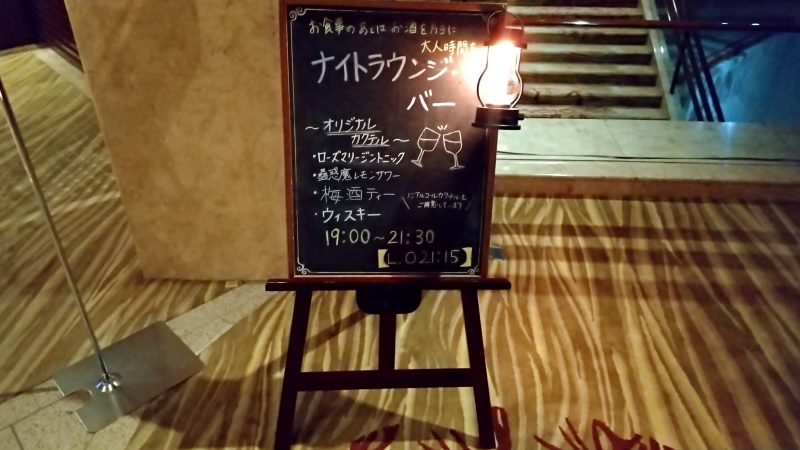 お食事のあとはお酒を片手に
大人時間を
ナイトラウンジ・
バー
～オリジナル
カクテル～
・ローズマリージントニック
・蟲惑魔レモンサワー
・梅酒ティー
・ウィスキー
アルコールカクテルも
ご用意しています
19:00～21:30
【L.O21:15】